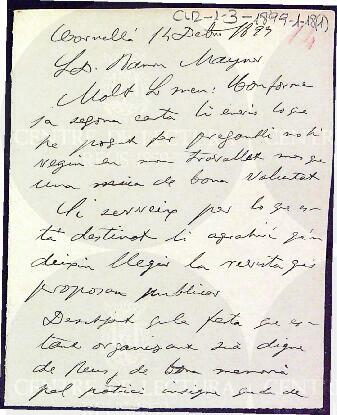 CLR-1-3-1899-1-18(1)
14
Cornellá 14 Debre 1899
S. D. Ramon
Molt Sr meu: Conforme
sa segona carta li envio lo que
he pogut fer pregantli no hi
vegin en mon travallet mes que
una mica de bona voluntat
Si serveix per lo que es-
tá destinat li agrahiré
deixin llegir la revista que
proposan publicar
Desitjant que la festa que es-
tant organisant siá digne
de Reus, de bona memoria
pel patrici insigne